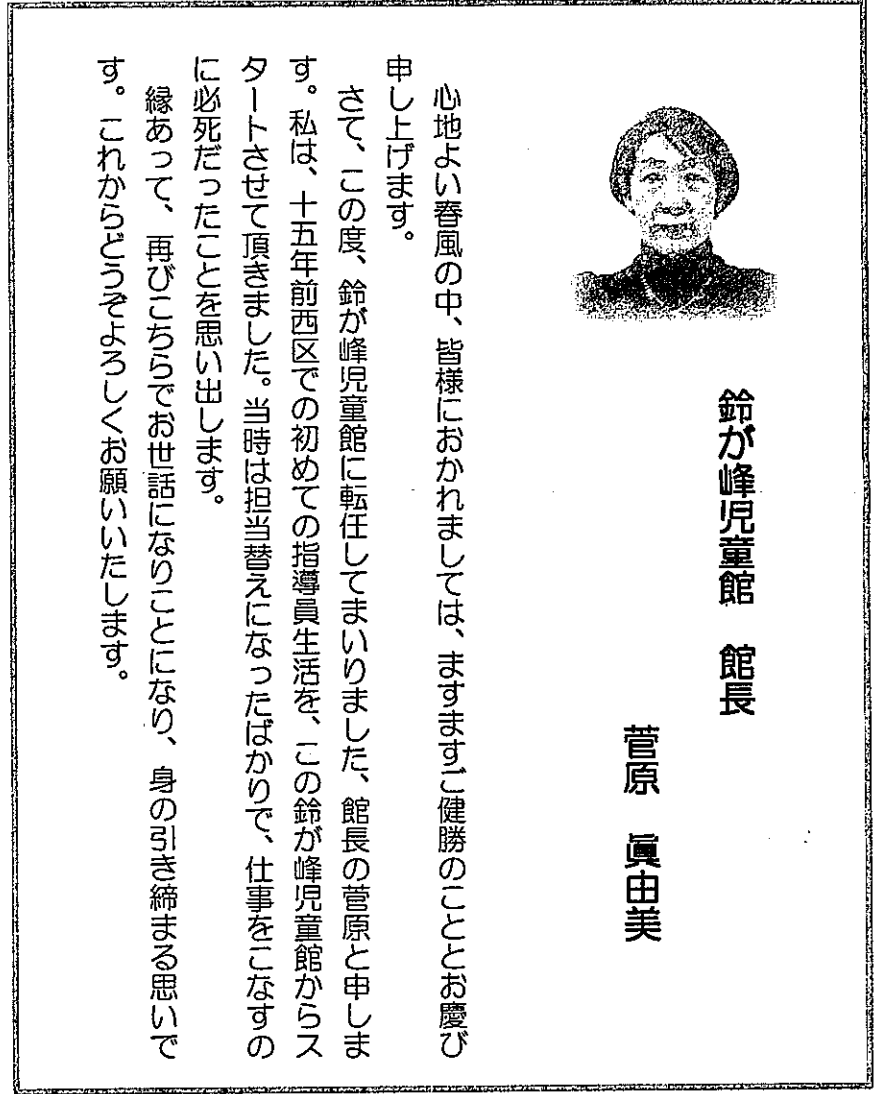 鈴が峰児童館　館長
菅原　眞由美
心地よい春風の中、皆様におかれましては、ますますご健勝のこととお慶び
申し上げます。
さて、この度、鈴が峰児童館に転任してまいりました、館長の菅原と申しま
す。私は、十五年前西区での初めての指導員生活を、この鈴が峰児童館からス
タートさせて頂きました。当時は担当替えになったばかりで、仕事をこなすの
に必死だったことを思い出します。
縁あって、再びこちらでお世話になりことになり、身の引き締まる思いで
す。これからどうぞよろしくお願いいたします。